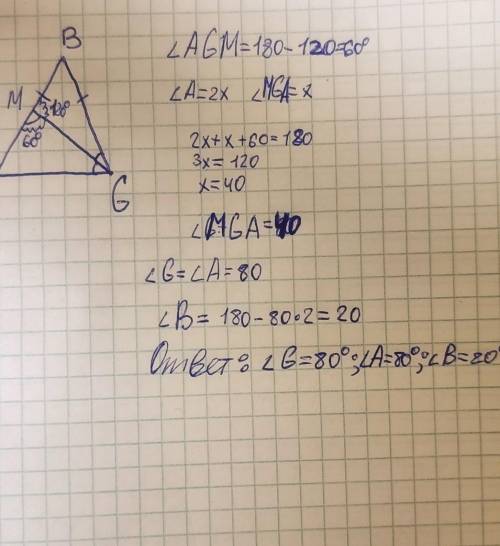 B
M
120°
60°
G
∠AGM=180-120=60°
∠A=2x ∠MGA=x
2x+x+60=180
3x=120
x=40
∠MGA=40
∠G=∠A=80
∠B=180-80•2=20
Ответ: ∠G=80°;∠A=80°;∠B=20°